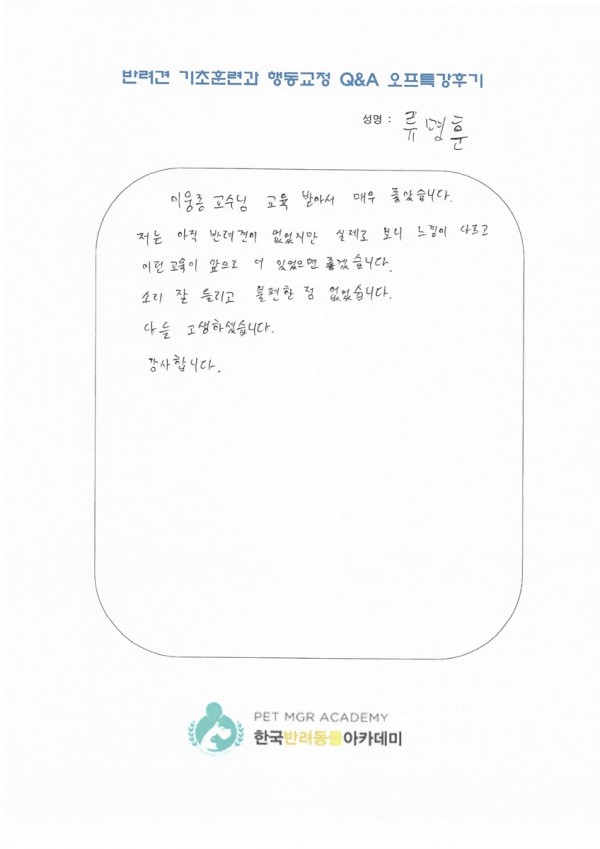 반려견 기초훈련과 행동교정 Q&A 오프특강후기
성명 : 류명훈
이웅종 교수님 교육 받아서 매우 좋았습니다.
저는 아직 반려견이 없었지만 실제로 보니 느낌이 다르고
이런 교육이 앞으로 더 있었으면 좋겠습니다.
소리 잘 들리고 불편한 점 없었습니다.
다들 고생하셨습니다.
감사합니다.
PET MGR ACADEMY
한국반려동물아카데미